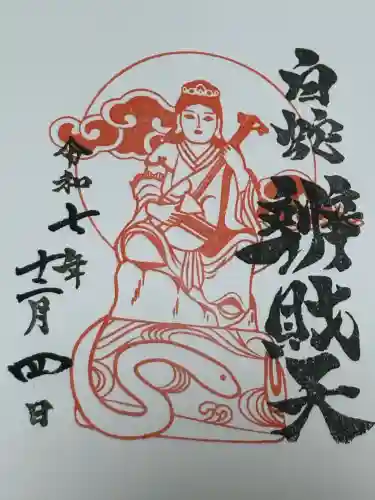 白蛇
辨財天
令和七年
十二月四日